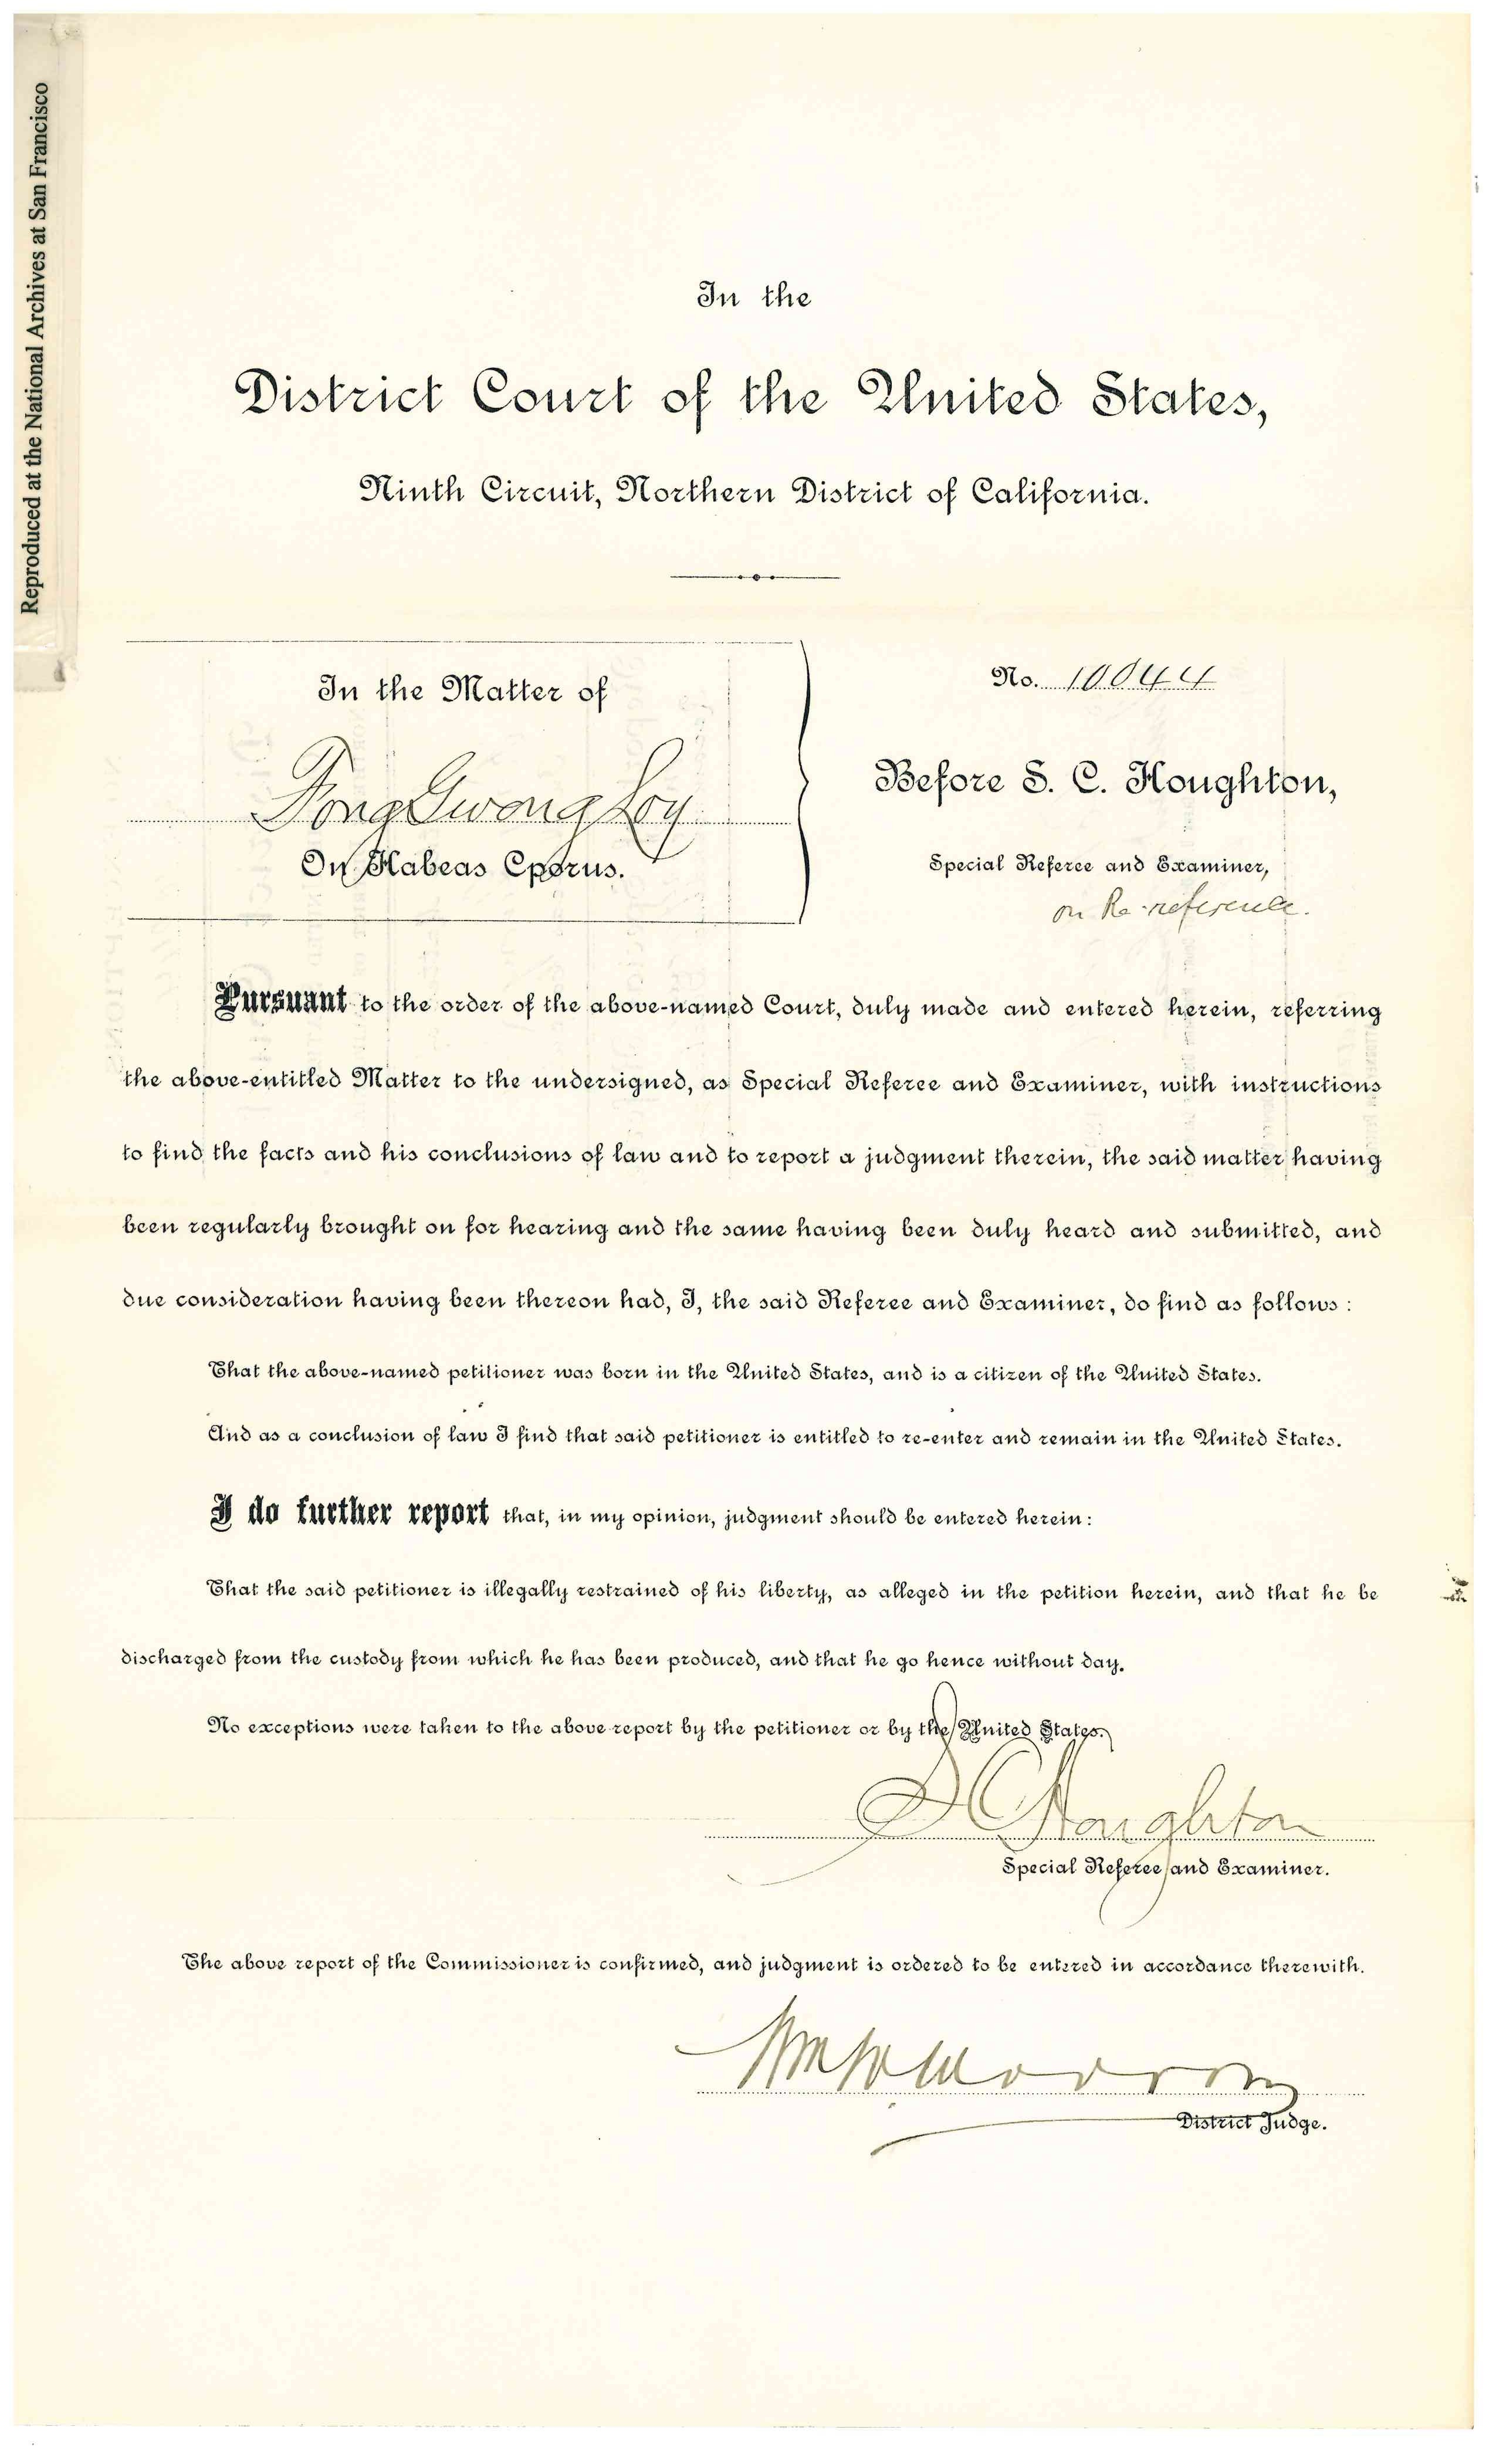 Reproduced at the National Archives at San Francisco
In the
District Court of the United States,
Ninth Circuit, Northern District of California.
In the Matter of
Gwong
On Habeas Cporus.
No. 10044
Before S. C. Houghton,
Special Referee and Examiner,
on Re-reference.
Pursuant to the order of the above-named Court, duly made and entered herein, referring
the above-entitled Matter to the undersigned, as Special Referee and Examiner, with instructions
to find the facts and his conclusions of law and to report a judgment therein, the said matter having
been regularly brought on for hearing and the same having been duly heard and submitted, and
due consideration having been thereon had, I, the said Referee and Examiner, do find as follows :
That the above-named petitioner was born in the United States, and is a citizen of the United States.
And as a conclusion of law I find that said petitioner is entitled to re-enter and remain in the United States.
I do further report that, in my opinion, judgment should be entered herein :
That the said petitioner is illegally restrained of his liberty, as alleged in the petition herein, and that he be
discharged from the custody from which he has been produced, and that he go hence without day.
No exceptions were taken to the above report by the petitioner or by the United States.
S C Houghton
Special Referee and Examiner.
The above report of the Commissioner is confirmed, and judgment is ordered to be entered in accordance therewith.
Wm W Morrow
District Judge.